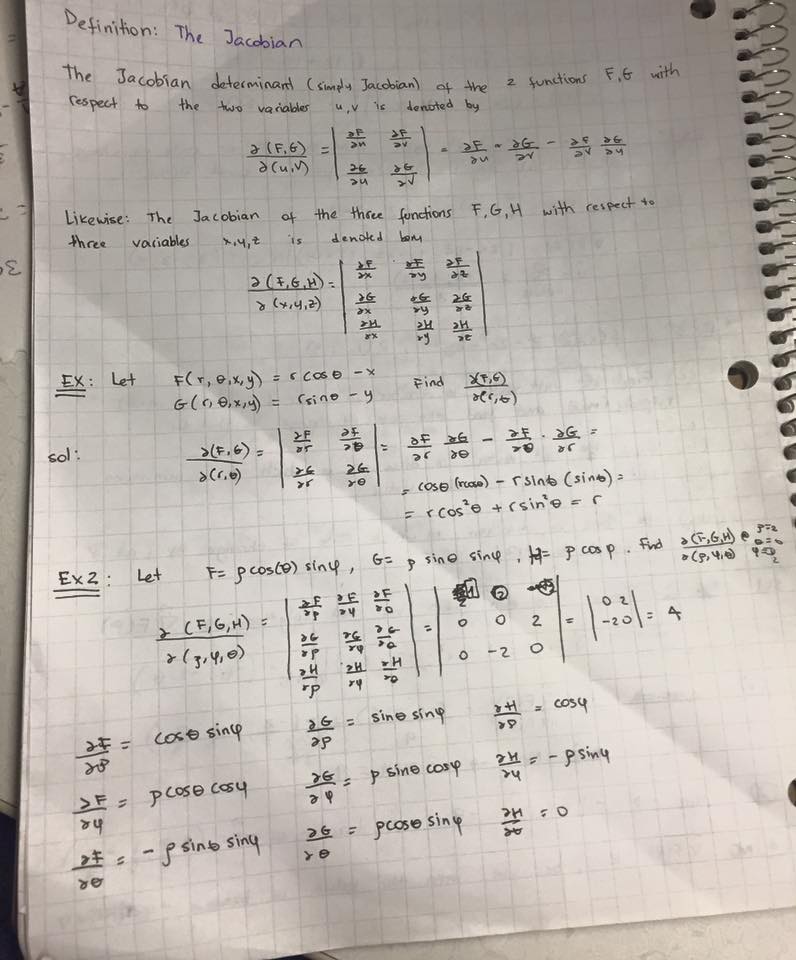 Definition: The Jacobian
The Jacobian determinant (simply Jacobian) of the 2 functions F,G with
respect to the two variables u,v is denoted by
∂(F,G)/∂(u,v) = | ∂F/∂u ∂F/∂v ; ∂G/∂u ∂G/∂v | = ∂F/∂u · ∂G/∂v − ∂F/∂v ∂G/∂u
Likewise: The Jacobian of the three functions F,G,H with respect to
three variables x,y,z is denoted
∂(F,G,H)/∂(x,y,z) = | ∂F/∂x ∂F/∂y ∂F/∂z ; ∂G/∂x ∂G/∂y ∂G/∂z ; ∂H/∂x ∂H/∂y ∂H/∂z |
EX: Let F(r,θ,x,y) = r cosθ − x Find ∂(F,G)/∂(r,θ)
G(r,θ,x,y) = r sinθ − y
sol: ∂(F,G)/∂(r,θ) = | ∂F/∂r ∂F/∂θ ; ∂G/∂r ∂G/∂θ | = ∂F/∂r ∂G/∂θ − ∂F/∂θ · ∂G/∂r =
= cosθ(rcosθ) − rsinθ(sinθ) =
= rcos²θ + rsin²θ = r
Ex2: Let F= ρcos(θ) sinφ, G= ρ sinθ sinφ, H= ρ cosρ. Find ∂(F,G,H)/∂(ρ,φ,θ) @ ρ=2 θ=0
∂(F,G,H)/∂(ρ,φ,θ) = | ∂F/∂ρ ∂F/∂φ ∂F/∂θ ; ∂G/∂ρ ∂G/∂φ ∂G/∂θ ; ∂H/∂ρ ∂H/∂φ ∂H/∂θ | = | 0 0 2 ; 0 −2 0 | = | 0 2 ; −2 0 | = 4
∂F/∂ρ = cosθ sinφ ∂G/∂ρ = sinθ sinφ ∂H/∂ρ = cosφ
∂F/∂φ = ρcosθ cosφ ∂G/∂φ = ρ sinθ cosφ ∂H/∂φ = −ρsinφ
∂F/∂θ = −ρ sinθ sinφ ∂G/∂θ = ρcosθ sinφ ∂H/∂θ = 0